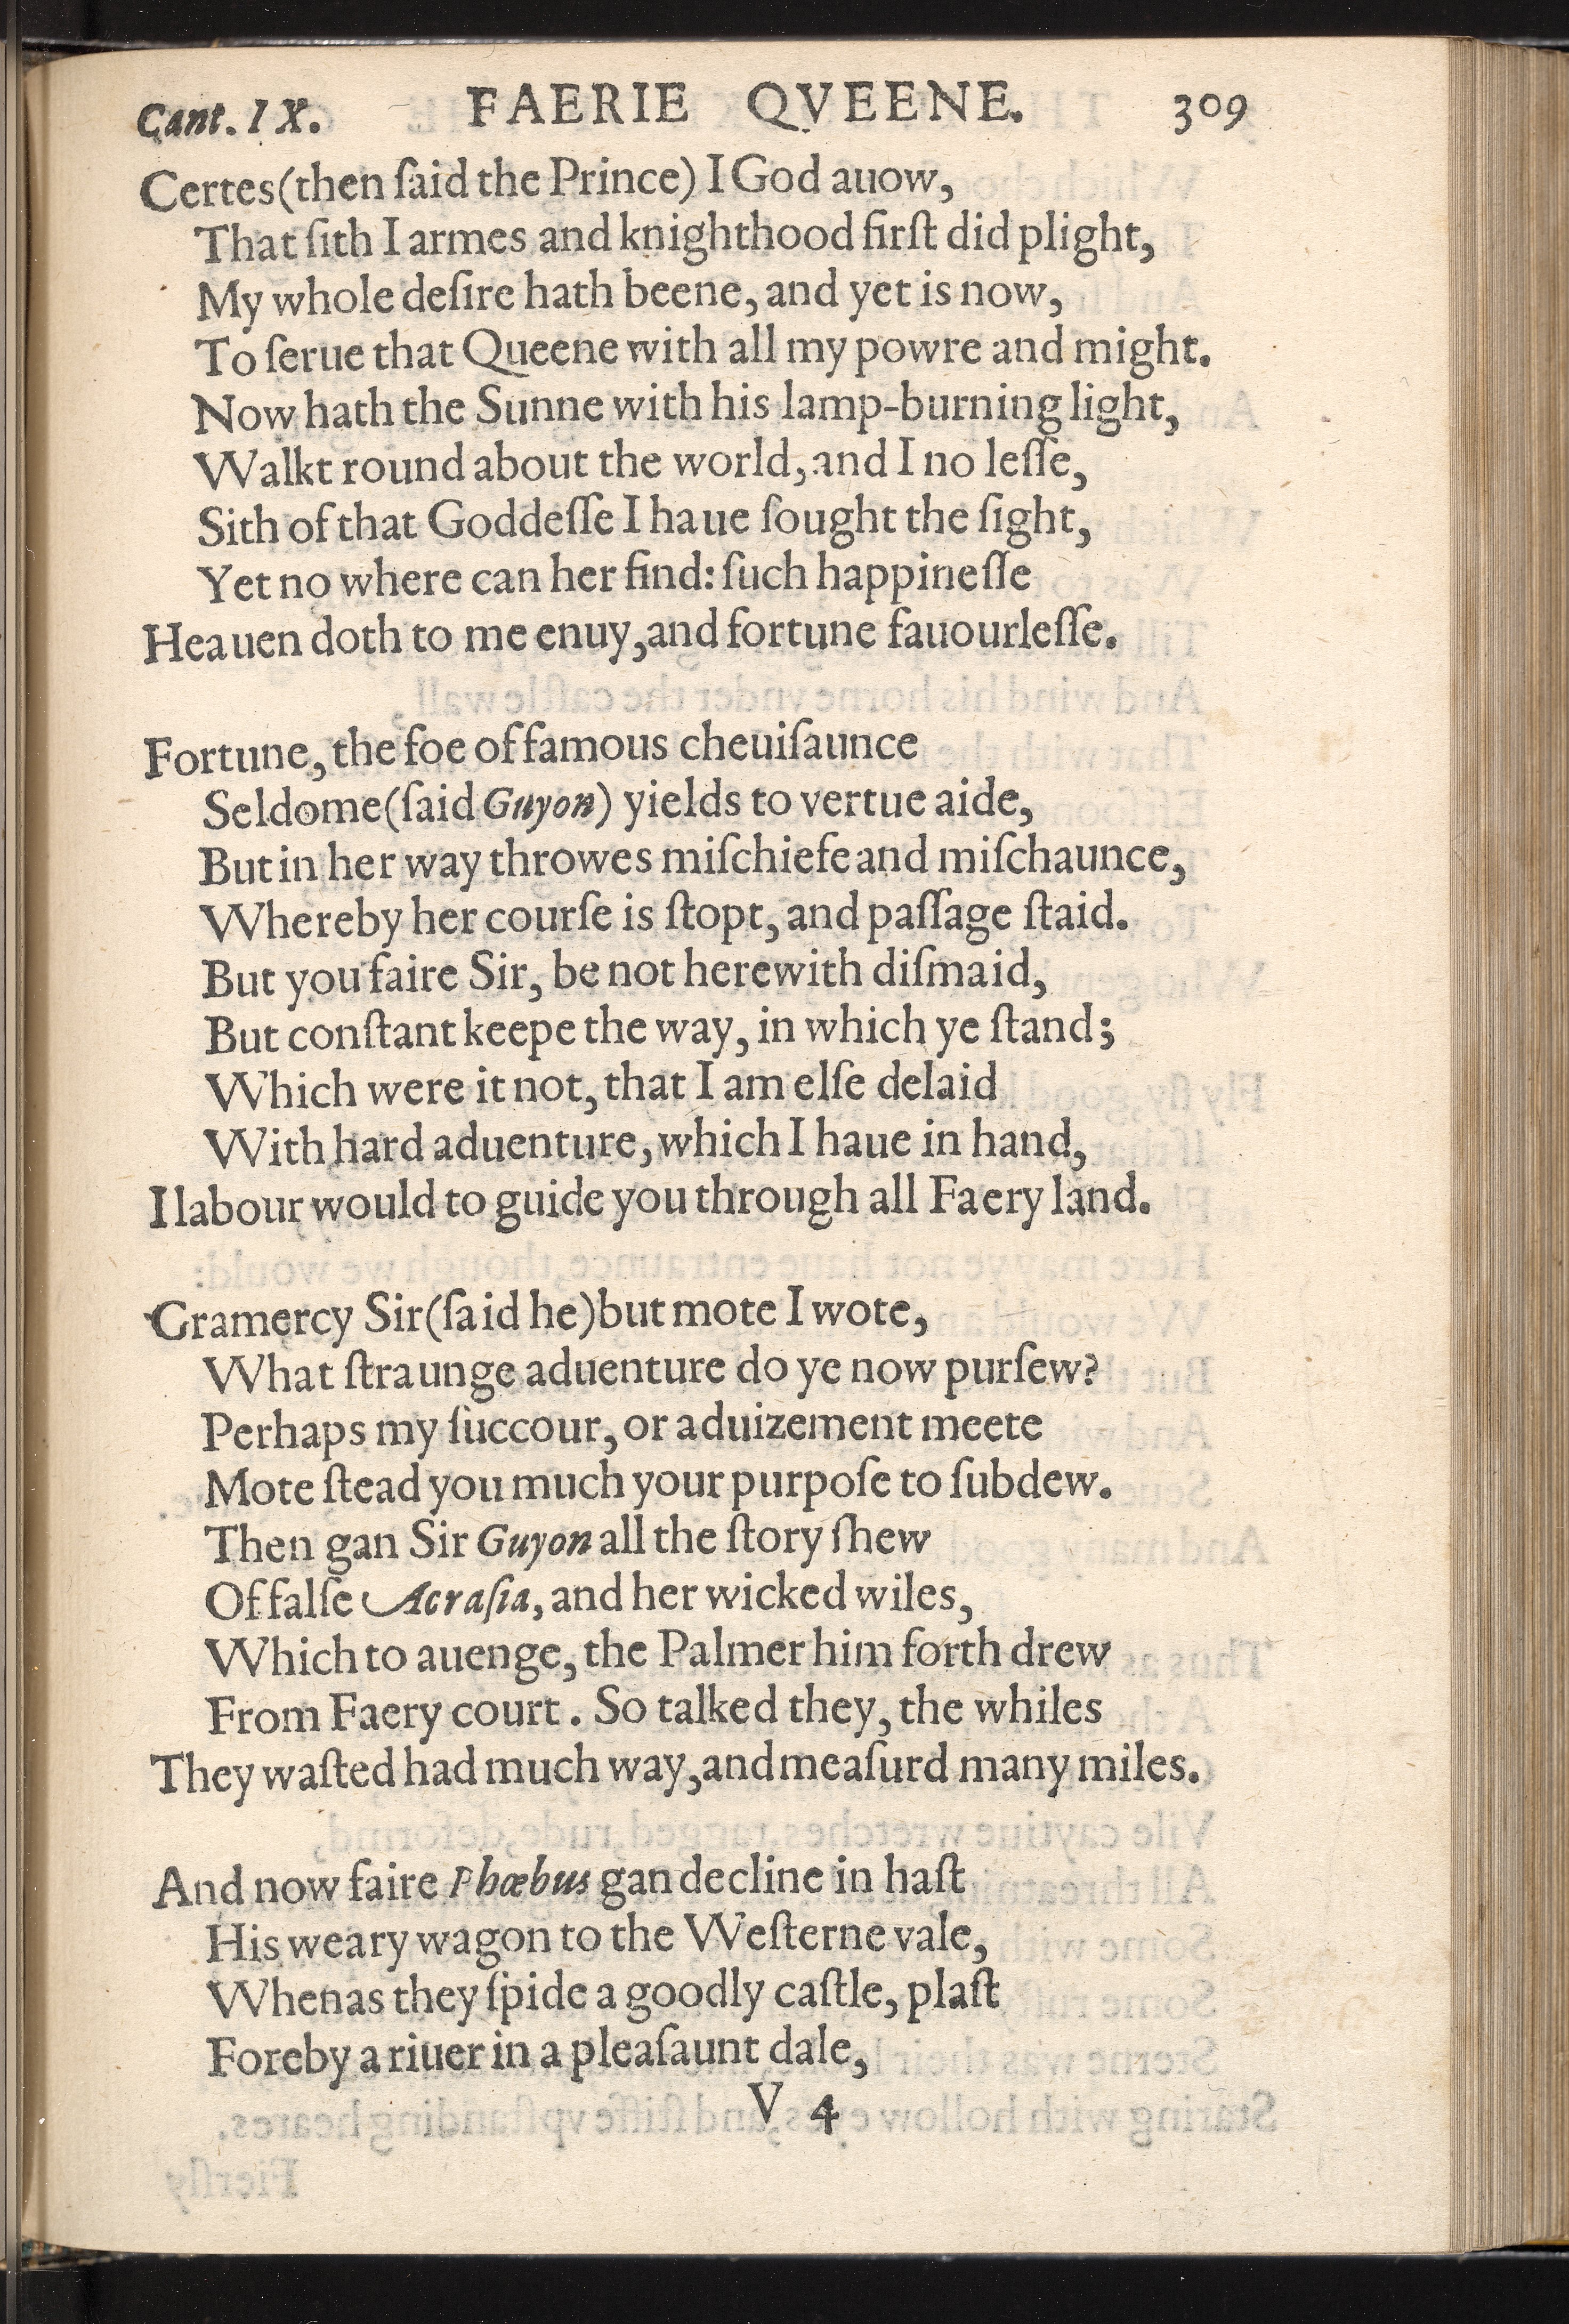 Cant. IX. FAERIE QVEENE. 309
Certes (then ſaid the Prince) I God auow,
That ſith I armes and knighthood firſt did plight,
My whole deſire hath beene, and yet is now,
To ſerue that Queene with all my powre and might.
Now hath the Sunne with his lamp-burning light,
Walkt round about the world, and I no leſſe,
Sith of that Goddeſſe I haue ſought the ſight,
Yet no where can her find: ſuch happineſſe
Heauen doth to me enuy, and fortune fauourleſſe.
Fortune, the foe of famous cheuiſaunce
Seldome (ſaid Guyon) yields to vertue aide,
But in her way throwes miſchiefe and miſchaunce,
Whereby her courſe is ſtopt, and paſſage ſtaid.
But you faire Sir, be not herewith diſmaid,
But conſtant keepe the way, in which ye ſtand;
Which were it not, that I am elſe delaid
With hard aduenture, which I haue in hand,
I labour would to guide you through all Faery land.
Gramercy Sir (ſaid he) but mote I wote,
What ſtraunge aduenture do ye now purſew?
Perhaps my ſuccour, or aduizement meete
Mote ſtead you much your purpoſe to ſubdew.
Then gan Sir Guyon all the ſtory ſhew
Of falſe Acraſia, and her wicked wiles,
Which to auenge, the Palmer him forth drew
From Faery court. So talked they, the whiles
They waſted had much way, and meaſurd many miles.
And now faire Phœbus gan decline in haſt
His weary wagon to the Weſterne vale,
Whenas they ſpide a goodly caſtle, plaſt
Foreby a riuer in a pleaſaunt dale,
V 4